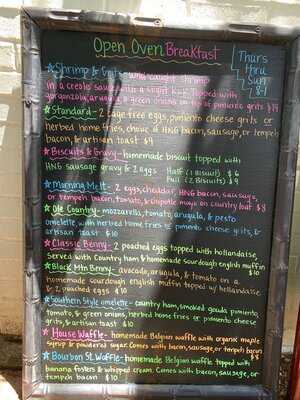 Open Oven Breakfast
Thurs
thru
Sun
8-1
Shrimp & Grits- wild caught shrimp
in a creole sauce with a slight kick. Topped with
gorgonzola, arugula, & green onions on top of pimento grits $14
Standard- 2 cage free eggs, pimento cheese grits or
herbed home fries, choice of HNG bacon, sausage, or tempeh
bacon, & artisan toast $9
Biscuits & Gravy- homemade biscuit topped with
HNG sausage gravy & 2 eggs Half (1 Biscuit) $6
Full (2 Biscuits) $9
Morning Melt- 2 eggs, cheddar, HNG bacon, sausage,
or tempeh bacon, tomato, & chipotle mayo on country loaf $8
Ole Country- mozzarella, tomato, arugula, & pesto
omelette, with herbed home fries or pimento cheese grits, &
artisan toast $10
Classic Benny- 2 poached eggs topped with hollandaise,
served with Country ham & homemade sourdough english muffin
$10
Black Mtn Benny- avocado, arugula, & tomato on a
homemade sourdough english muffin topped w/ hollandaise
& 2 poached eggs $10
Southern Style omelette- country ham, smoked gouda pimento,
tomato, & green onions, herbed home fries or pimento cheese
grits, & artisan toast $10
House Waffle- homemade Belgian waffle with organic maple
syrup & powdered sugar. Comes with bacon, sausage, or tempeh bacon
Bourbon St. Waffle- homemade Belgian waffle topped with
banana fosters & whipped cream. Comes with bacon, sausage, or
tempeh bacon $10